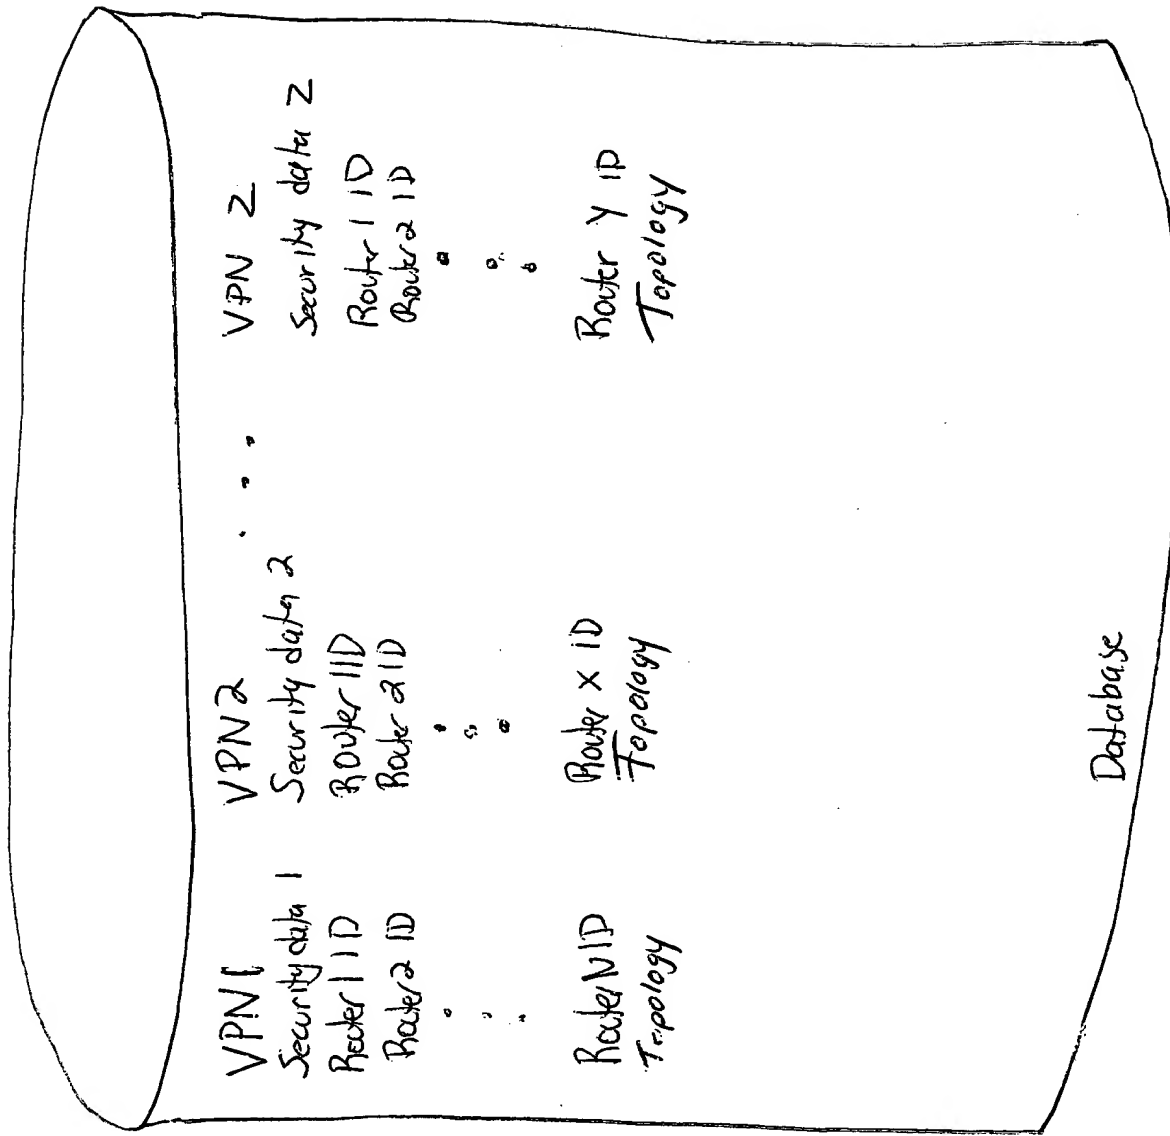 VPN1
Security data 1
Router 1 ID
Router 2 ID
.
.
.
Router N ID
Topology
VPN2
Security data 2
Router 1 ID
Router 2 ID
.
.
.
Router X ID
Topology
. . .
VPN Z
Security data Z
Router 1 ID
Router 2 ID
.
.
.
Router Y ID
Topology
Database